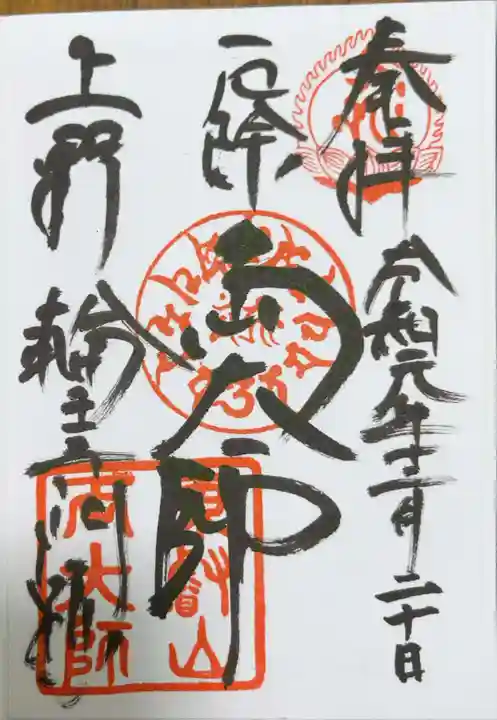 奉拝
令和元年十二月二十日
厄除
両大師
上野
輪王寺門跡
東叡山
両大師